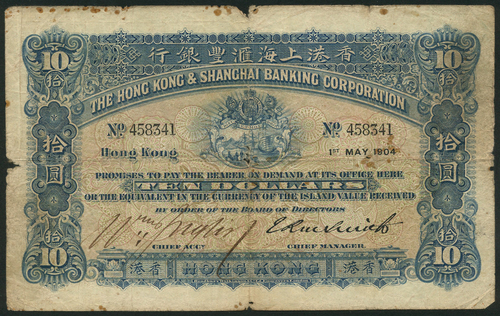 行銀豐滙海上港香
THE HONG KONG & SHANGHAI BANKING CORPORATION
10 10
拾 拾
No 458341 No 458341
Hong Kong 1ST MAY 1904
拾圓 拾圓
PROMISES TO PAY THE BEARER ON DEMAND AT ITS OFFICE HERE
TEN DOLLARS
OR THE EQUIVALENT IN THE CURRENCY OF THE ISLAND VALUE RECEIVED
BY ORDER OF THE BOARD OF DIRECTORS
CHIEF ACCT. CHIEF MANAGER.
拾 拾
10 10
港香 HONG KONG 香港